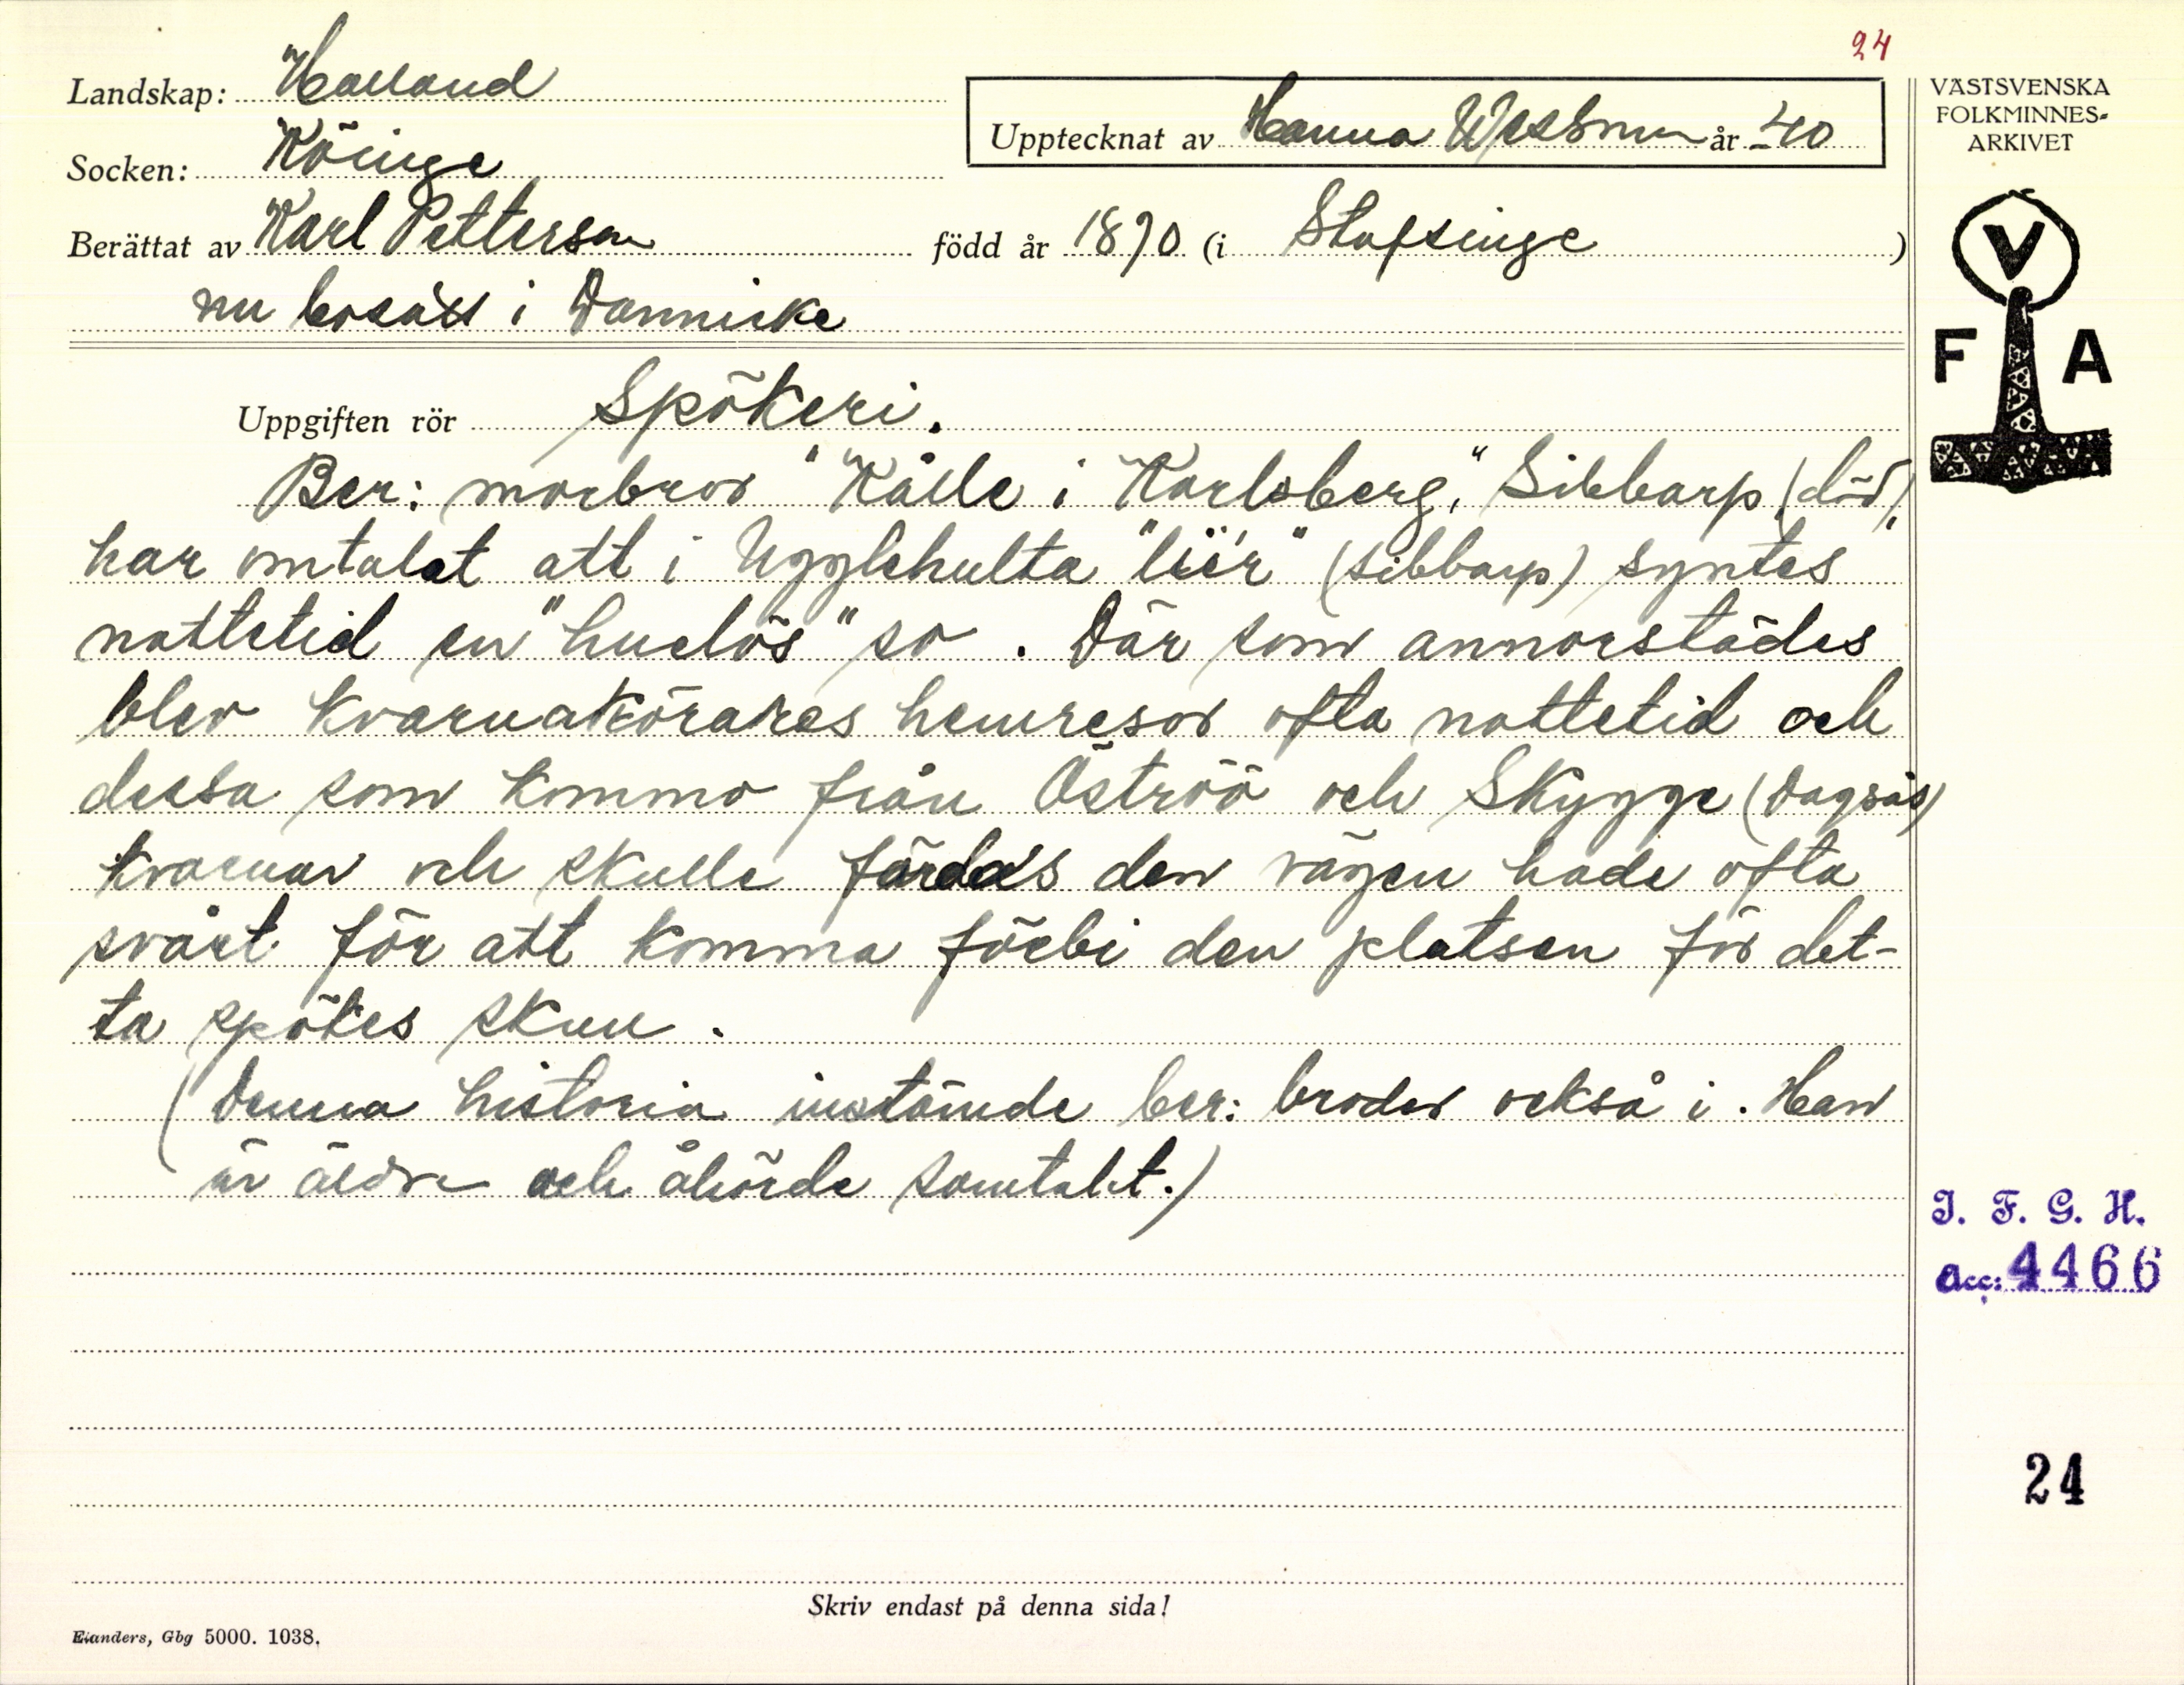 24
Landskap: Halland
Socken: Köinge
Upptecknat av Hanna Wessman år 40
Berättat av Karl Petterson född år 1890 (i Stafsinge)
nu bosatt i Dannicke
VÄSTSVENSKA
FOLKMINNES-
ARKIVET
V
F A
Uppgiften rör Spökeri.
Ber: morbror "Kålle i Karlsberg," Sibbarp (död),
har omtalat att i Ugglehulta "liér" (Sibbarp) syntes
nattetid en "huelös" so. Där som annorstädes
blev kvarnakörares hemresor ofta nattetid och
dessa som kommo från Öströö och Skygge (Dagsås)
kvarnar och skulle färdas den vägen hade ofta
svårt för att komma förbi den platsen för det-
ta spökes skull.
(Denna historia instämde ber: broder också i. Han
är äldre och åhörde samtalet.)
I. F. G. H.
Acc: 4466
24
Skriv endast på denna sida!
Elanders, Gbg 5000. 1038.